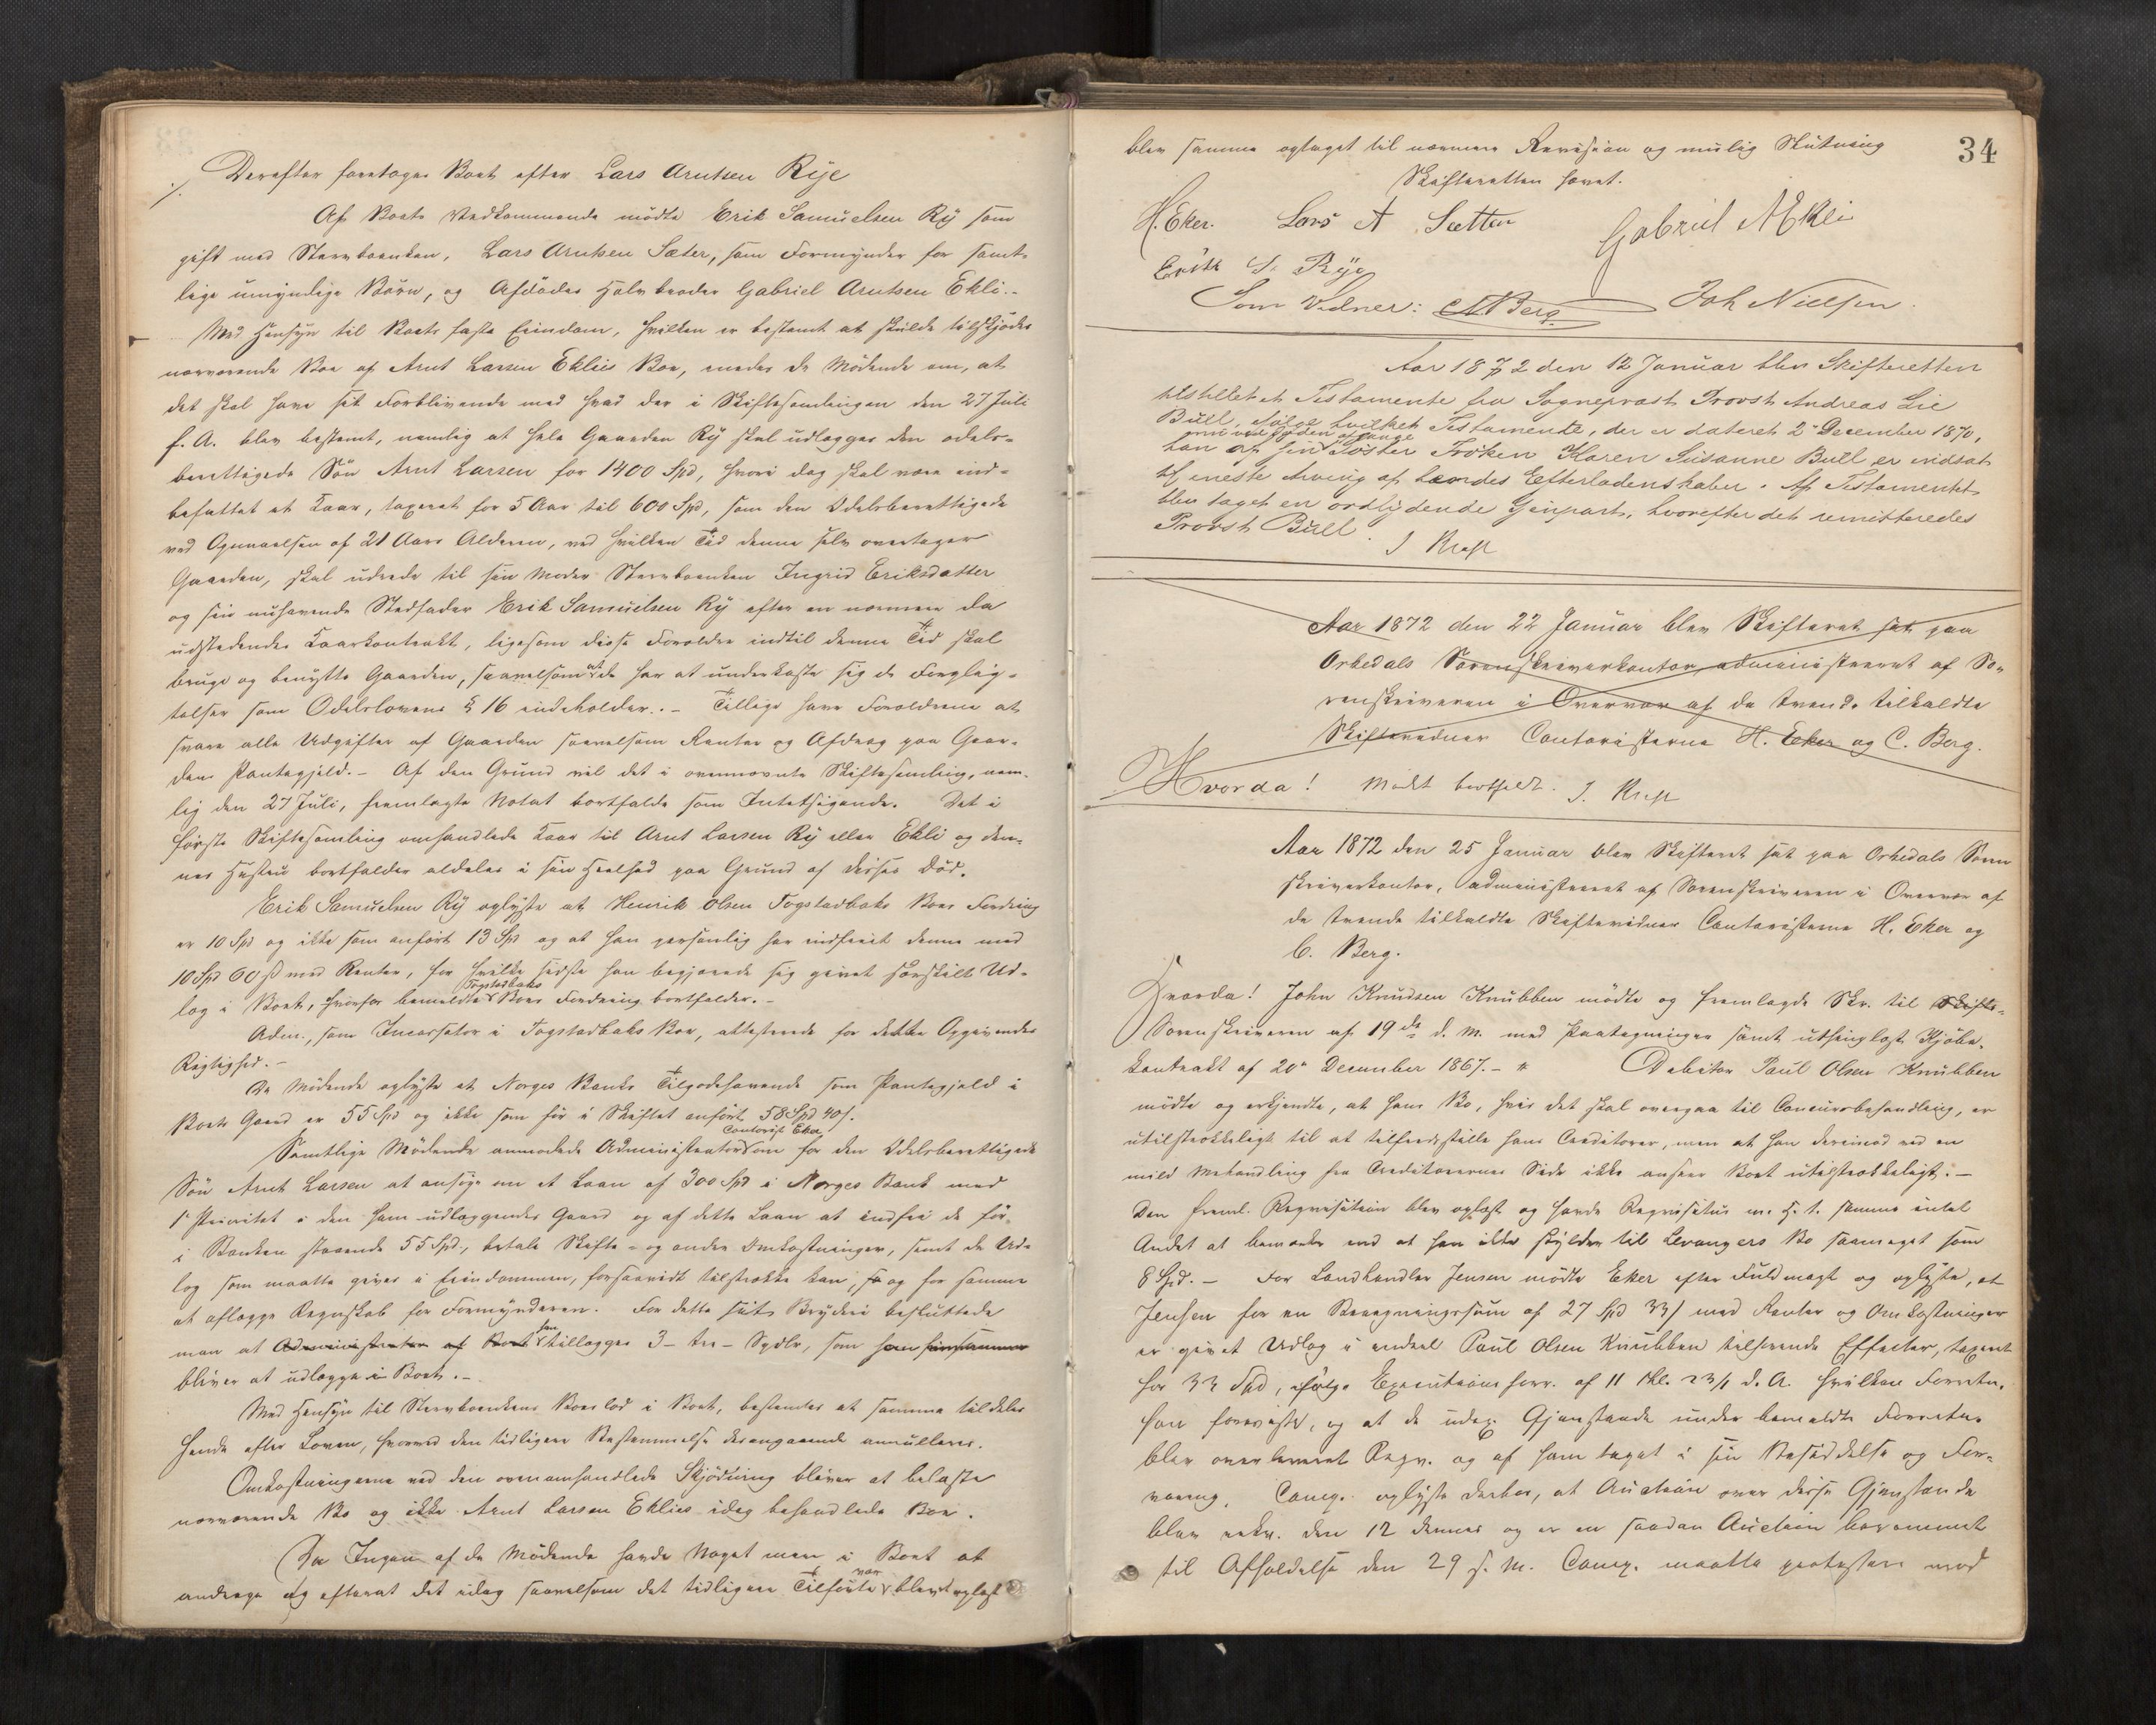 Derefter foretoges Boet efter Lars Arntsen Rye
Af Boets Vedkommende mödte Erik Samuelsen Ry som
gift med Stervboenken, Lars Arntsen Sæter, som Formynder for samt-
lige umyndige Börn, og Afdödes Halvbroder Gabriel Arntsen Ekli.-
Med Hensyn til Boets faste Eiendom, hvilken er bestemt at skulde tilskjödes
nærværende Boe af Arnt Larsen Eklies Boe, enedes de Mödende om, at
det skal have sit Forblivende med hvad der i Skiftesamlingen den 27 Juli
f. A. blev bestemt, nemlig at hele Gaarden Ry skal udlægges den odels-
berettigede Sön Arnt Larsen for 1400 Spd, hvori dog skal være ind-
befattet et Kaar, taxeret for 5 Aar til 600 Spd, som den Odelsberettigede
ved Opnaaelsen af 21 Aars Alderen, ved hvilken Tid denne selv overtager
Gaarden, skal udrede til sin Moder Stervboenken Ingrid Eriksdatter
og sin nuhavende Stedfader Erik Samuelsen Ry efter en nærmere da
udstedendes Kaarkontrakt, ligesom disse Forældre indtil denne Tid skal
bruge og benytte Gaarden, saavelsom at de har at underkaste sig de Forplig-
telser som Odelslovens § 16 indeholder.- Tillige have Forældrene at
svare alle Udgifter af Gaarden saavelsom Renter og Afdrag paa Gaar-
dens Pantegjeld.- Af den Grund vil det i ovennævnte Skiftesamling, nem-
lig den 27 Juli, fremlagte Notat bortfalde som Intetsigende. Det i
förste Skiftesamling omhandlede Kaar til Arnt Larsen Ry eller Ekli og den-
nes Hustru bortfalder aldeles i sin Heelhed paa Grund af disses Död.
Erik Samuelsen Ry oplyste at Henrik Olsen Fogstadbaks Boes Fordring
er 10 Spd og ikke som anfört 13 Spd og at han personlig har indfriet denne med
10 Spd 60 ß med Renter, for hvilke sidste han begjærede sig givet særskilt Ud-
læg i Boet, hvorfor bemeldte Fogstadbaks Boes Fordring bortfalder.-
Adm., som Incassator i Fogstadbaks Boe, attesterede for dette Opgivendes
Rigtighed.-
De Mödende oplyste at Norges Banks Tilgodehavende som Pantegjeld i
Boets Gaard er 55 Spd og ikke som för i Skiftet anfört 58 Spd 40 ß.
Samtlige Mödende anmodede Administrator Contorist Eker om for den Odelsberettigede
Sön Arnt Larsen at ansöge om et Laan af 300 Spd i Norges Bank med
1ste Prioritet i den ham udlæggendes Gaard og af dette Laan at indfri de för
i Banken staaende 55 Spd, betale Skifte- og andre Omkostninger, samt de Ud-
læg som maatte gives i Eiendommen, forsaavidt tilstrække kan, og for samme
at aflægge Regnskab for Formynderen. For dette sit Bryderi besluttede
man at Administrator af Boet han tillægges 3 - tre - Spdlr, som
bliver at udlægge i Boet.-
Med Hensyn til Stervboenkens Boeslod i Boet, bestemtes at samme tildeles
hende efter Loven, hvorved den tidligere Bestemmelse desangaaende annulleres.
Omkostningerne ved den ovenomhandlede Skjödning bliver at belaste
nærværende Bo og ikke Arnt Larsen Eklies idag behandlede Boe.
Da Ingen af de Mödende havde Noget mere i Boet at
andrage og efterat det idag saavelsom det tidligere Tilförte var blevet oplæst
34
blev samme optaget til nærmere Revision og mulig Slutning
Skifteretten hævet.
H. Eker. Lars A Sætter Gabriel A Ekli
Erik S. Rye
Som Vidner: C Berg Joh Nielsen.
Aar 1872 den 12 Januar blev Skifteretten
tilstillet et Testamente fra Sogneprest Provst Andreas Lie
Bull, ifölge hvilket Testamente, der er dateret 2 December 1870,
han af sin Söster Fröken Karen Susanne Bull er indsat
til eneste Arving af hendes Efterladenskaber. Af Testamentet
blev taget en ordlydende Gjenpart, hvorefter det remitteredes
Provst Bull.
Aar 1872 den 22 Januar blev Skifteret sat paa
Orkedals Sorenskriverkontor, administreret af So-
renskriveren i Overvær af de tvende tilkaldte
Skiftevidner Contoristerne H. Eker og C. Berg.
Hvorda! Mödet bortfaldt.
Aar 1872 den 25 Januar blev Skifteret sat paa Orkedals Soren
skriverkontor, administreret af Sorenskriveren i Overvær af
de tvende tilkaldte Skiftevidner Contoristerne H. Eker og
C. Berg.
Hvorda! John Knudsen Knubben mödte og fremlagde Skr. til Skifte-
Sorenskriveren af 19de d. M. med Paategninger samt uthinglæst Kjöbe-
kontrakt af 20de December 1867.- Debitor Paul Olsen Knubben
mödte og erkjendte, at hans Bo, hvis det skal overgaa til Concursbehandling, er
utilstrækkeligt til at tilfredsstille hans Creditorer, men at han derimod ved en
mild Behandling fra Creditorernes Side ikke anseer Boet utilstrækkeligt.-
Den freml. Reqvisition blev oplæst og havde Reqvisitus m. H. t. samme intet
Andet at bemærke end at han ikke skylder til Levangers Bo saameget som
8 Spd.- For Landhandler Jensen mödte Eker efter Fuldmagt og oplyste, at
Jensen for en Beregningssum af 27 Spd 33 ß med Renter og Omkostninger
er givet Udlæg i endeel Paul Olsen Knubben tilhörende Effecter, taxeret
for 33 Spd, ifölge Executionsforr. af 11 d. A. hvilken Forretn.
han foreviste, og at de udlagte Gjenstande under bemeldte Forretn.
blev overleveret Reqv. og af ham taget i sin Besiddelse og For-
varing. Comp. oplyste derhos, at Auction over disse Gjenstande
blev den 12 dennes og er en saadan Auction berammet
til Afholdelse den 29 s. M. Comp. maatte protestere mod